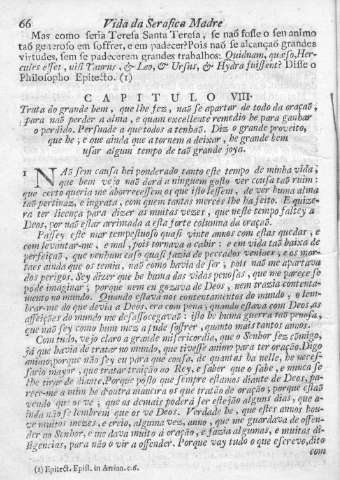 66 Vida da Serafica Madre
Mas como seria Teresa Santa Teresa, se naõ fosse o seu animo
taõ generoso em soffrer, e em padecer? Pois naõ se alcançaõ grandes
virtudes, sem se padecerem grandes trabalhos: Quidnam, quæso, Her-
cules esset, nisi Taurus, & Leo, & Ursus, & Hydra fuissent? Disse o
Philosopho Epitecto. (1)
CAPITULO VIII.
Trata do grande bem, que lhe fez, naõ se apartar de todo da oraçaõ,
para naõ perder a alma, e quam excellente remedio he para ganhar
o perdido. Persuade a que todos a tenhaõ. Diz o grande proveito,
que he; e que ainda que a tornem a deixar, he grande bem
usar algum tempo de taõ grande joya.
1 NAõ sem causa hei ponderado tanto este tempo de minha vida;
que bem vejo naõ dará a ninguem gosto ver cousa taõ ruim:
que certo queria me aborrecessem os que isto lessem, de ver huma alma
taõ pertinaz, e ingrata, com quem tantas mercês lhe ha feito. E quize-
ra ter licença para dizer as muitas vezes, que neste tempo faltey a
Deos, por naõ estar arrimada a esta forte columna da oraçaõ.
Passey este mar tempestuoso quasi vinte annos com estas quedas, e
com levantar-me, e mal, pois tornava a cahir: e em vida taõ baixa de
perfeiçaõ, que nenhum caso quasi fazia de peccados veniaes, e os mor-
taes ainda que os temia, naõ como havia de ser; pois naõ me apartava
dos perigos. Sey dizer que he huma das vidas penosas, que me parece se
póde imaginar; porque nem eu gozava de Deos, nem trazia contenta-
mento no mundo. Quando estava nos contentamentos do mundo, o lem-
brar-me do que devia a Deos, era com pena; quando estava com Deos, as
affeiçoẽs do mundo me desassocegavaõ: isto he huma guerra taõ penosa,
que naõ sey como hum mez a pude soffrer, quanto mais tantos annos.
Com tudo, vejo claro a grande misericordia, que o Senhor fez comigo,
já que havia de tratar no mundo, que tivesse animo para ter oraçaõ. Digo
animo, porque naõ sey eu para que cousa, de quantas ha nelle, he neces-
sario mayor, que tratar traiçaõ ao Rey, e saber que o sabe, e nunca se
lhe tirar de diante. Porque posto que sempre estamos diante de Deos, pa-
rece-me a mim he doutra maneira os que trataõ de oraçaõ; porque estaõ
vendo que os ve; que os demais poderá ser estejaõ alguns dias, que a-
inda naõ se lembrem que os ve Deos. Verdade he, que estes annos hou-
ve muitos mezes, e creio, alguma vez, anno, que me guardava de offen-
der ao Senhor, e me dava muito á oraçaõ, e fazia algumas, e muitas di-
ligencias, para naõ o vir a offender. Porque vay tudo o que escrevo, dito
com
(1) Epitect. Epist. in Arrian. c.6.